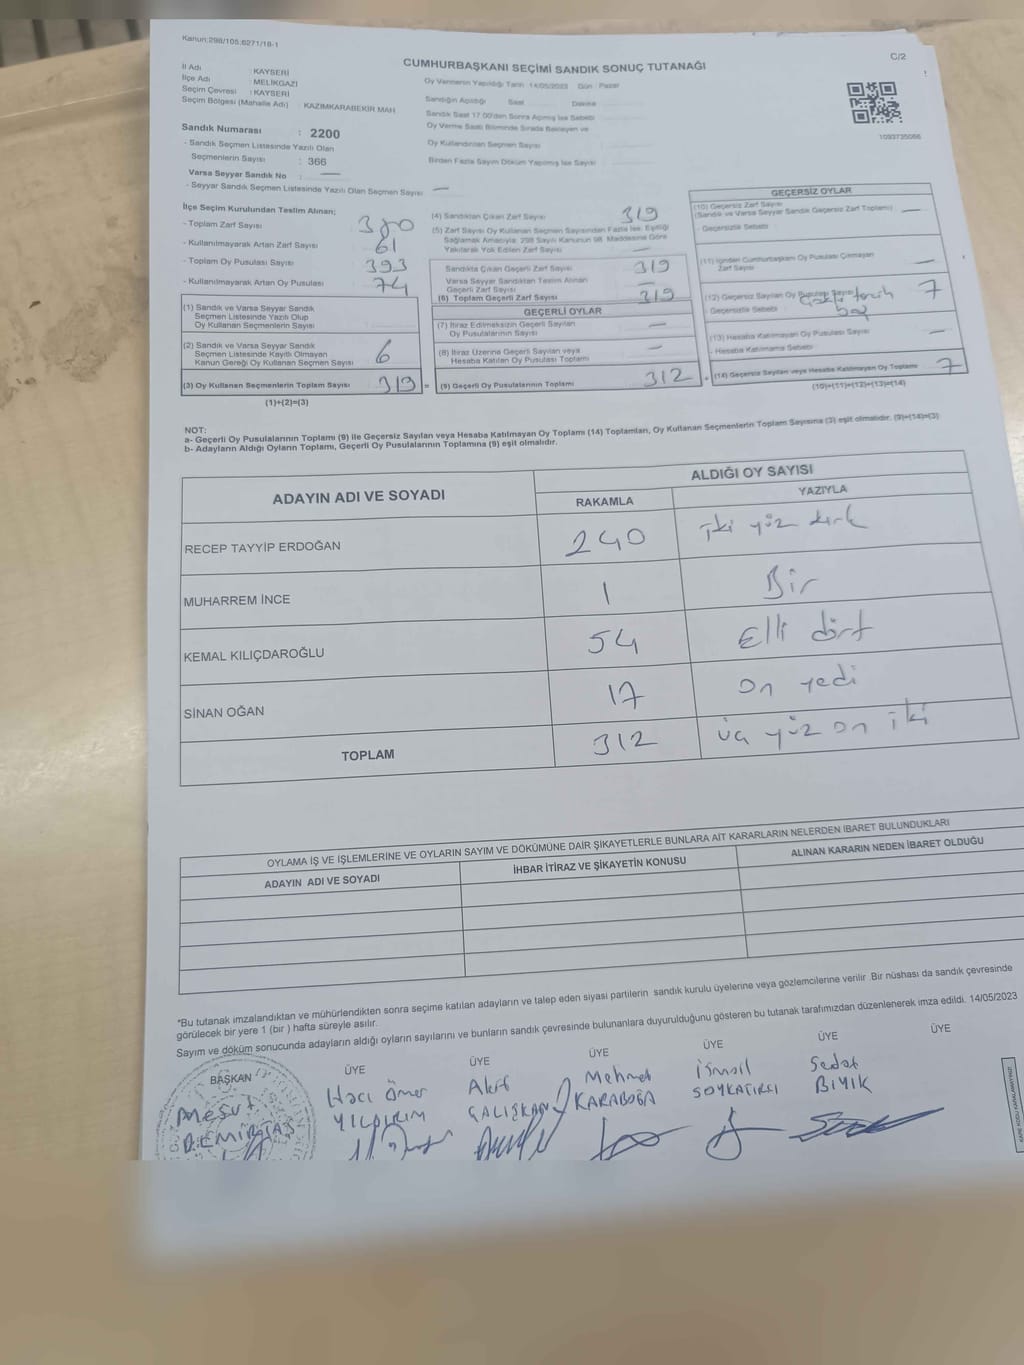 Kanun:298/105;6271/18-1
C/2
CUMHURBAŞKANI SEÇİMİ SANDIK SONUÇ TUTANAĞI
İl Adı : KAYSERİ
İlçe Adı : MELİKGAZİ
Seçim Çevresi : KAYSERİ
Seçim Bölgesi (Mahalle Adı) : KAZIMKARABEKİR MAH.
Sandık Numarası : 2200
- Sandık Seçmen Listesinde Yazılı Olan
Seçmenlerin Sayısı : 366
Varsa Seyyar Sandık No : —
- Seyyar Sandık Seçmen Listesinde Yazılı Olan Seçmen Sayısı —
Oy Vermenin Yapıldığı Tarih 14/05/2023 Gün : Pazar
Sandığın Açıldığı Saat Dakika
Sandık Saat 17.00'den Sonra Açılmış İse Sebebi
Oy Verme Saati Bitiminde Sırada Bekleyen ve
Oy Kullandırılan Seçmen Sayısı
Birden Fazla Sayım Döküm Yapılmış İse Sayısı
1093735066
İlçe Seçim Kurulundan Teslim Alınan;
- Toplam Zarf Sayısı 380
- Kullanılmayarak Artan Zarf Sayısı 61
- Toplam Oy Pusulası Sayısı 393
- Kullanılmayarak Artan Oy Pusulası 74
(1) Sandık ve Varsa Seyyar Sandık
Seçmen Listesinde Yazılı Olup
Oy Kullanan Seçmenlerin Sayısı
(2) Sandık ve Varsa Seyyar Sandık
Seçmen Listesinde Kayıtlı Olmayan
Kanun Gereği Oy Kullanan Seçmen Sayısı 6
(3) Oy Kullanan Seçmenlerin Toplam Sayısı 319 =
(1)+(2)=(3)
(4) Sandıktan Çıkan Zarf Sayısı 319
(5) Zarf Sayısı Oy Kullanan Seçmen Sayısından Fazla İse, Eşitliği
Sağlamak Amacıyla; 298 Sayılı Kanunun 98. Maddesine Göre
Yakılarak Yok Edilen Zarf Sayısı —
Sandıkta Çıkan Geçerli Zarf Sayısı 319
Varsa Seyyar Sandıktan Teslim Alınan
Geçerli Zarf Sayısı —
(6) Toplam Geçerli Zarf Sayısı 319
GEÇERLİ OYLAR
(7) İtiraz Edilmeksizin Geçerli Sayılan
Oy Pusulalarının Sayısı —
(8) İtiraz Üzerine Geçerli Sayılan veya
Hesaba Katılan Oy Pusulası Toplamı —
(9) Geçerli Oy Pusulalarının Toplamı 312 +
GEÇERSİZ OYLAR
(10) Geçersiz Zarf Sayısı
(Sandık ve Varsa Seyyar Sandık Geçersiz Zarf Toplamı) —
Geçersizlik Sebebi
(11) İçinden Cumhurbaşkanı Oy Pusulası Çıkmayan
Zarf Sayısı —
(12) Geçersiz Sayılan Oy Pusulası Sayısı 7
Geçersizlik Sebebi
(13) Hesaba Katılmayan Oy Pusulası Sayısı —
- Hesaba Katılmama Sebebi
(14) Geçersiz Sayılan veya Hesaba Katılmayan Oy Toplamı 7
(10)+(11)+(12)+(13)=(14)
NOT:
a- Geçerli Oy Pusulalarının Toplamı (9) ile Geçersiz Sayılan veya Hesaba Katılmayan Oy Toplamı (14) Toplamları, Oy Kullanan Seçmenlerin Toplam Sayısına (3) eşit olmalıdır. (9)+(14)=(3)
b- Adayların Aldığı Oyların Toplamı, Geçerli Oy Pusulalarının Toplamına (9) eşit olmalıdır.
ADAYIN ADI VE SOYADI
ALDIĞI OY SAYISI
RAKAMLA YAZIYLA
RECEP TAYYİP ERDOĞAN 240 iki yüz kırk
MUHARREM İNCE 1 Bir
KEMAL KILIÇDAROĞLU 54 Elli dört
SİNAN OĞAN 17 On yedi
TOPLAM 312 üç yüz on iki
OYLAMA İŞ VE İŞLEMLERİNE VE OYLARIN SAYIM VE DÖKÜMÜNE DAİR ŞİKAYETLERLE BUNLARA AİT KARARLARIN NELERDEN İBARET BULUNDUKLARI
ADAYIN ADI VE SOYADI İHBAR İTİRAZ VE ŞİKAYETİN KONUSU ALINAN KARARIN NEDEN İBARET OLDUĞU
*Bu tutanak imzalandıktan ve mühürlendikten sonra seçime katılan adayların ve talep eden siyasi partilerin sandık kurulu üyelerine veya gözlemcilerine verilir. Bir nüshası da sandık çevresinde
görülecek bir yere 1 (bir ) hafta süreyle asılır.
Sayım ve döküm sonucunda adayların aldığı oyların sayılarını ve bunların sandık çevresinde bulunanlara duyurulduğunu gösteren bu tutanak tarafımızdan düzenlenerek imza edildi. 14/05/2023
BAŞKAN ÜYE ÜYE ÜYE ÜYE ÜYE ÜYE
Mesut DEMİRTAŞ
Hacı Ömer YILDIRIM
Akif ÇALIŞKAN
Mehmet KARABOĞA
İsmail SOYKATIRCI
Sedat BIYIK